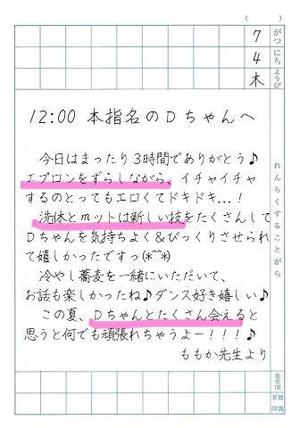 (　)
がつ にち ようび
7
4
木
れんらくすることがら
12:00 本指名のDちゃんへ
今日はまったり3時間でありがとう♪
エプロンをずらしながら、イチャイチャ
するのとってもエロくてドキドキ...！
洗体とmットは新しい技をたくさんして
Dちゃんを気持ちよく&びっくりさせられ
て嬉しかったですっ(*^^*)
冷やし蕎麦を一緒にいただいて、
お話も楽しかったね♪ダンス好き嬉しい♪
この夏、Dちゃんとたくさん会えると
思うと何でも頑張れちゃうよー！！！♪
ももか先生より
先生印